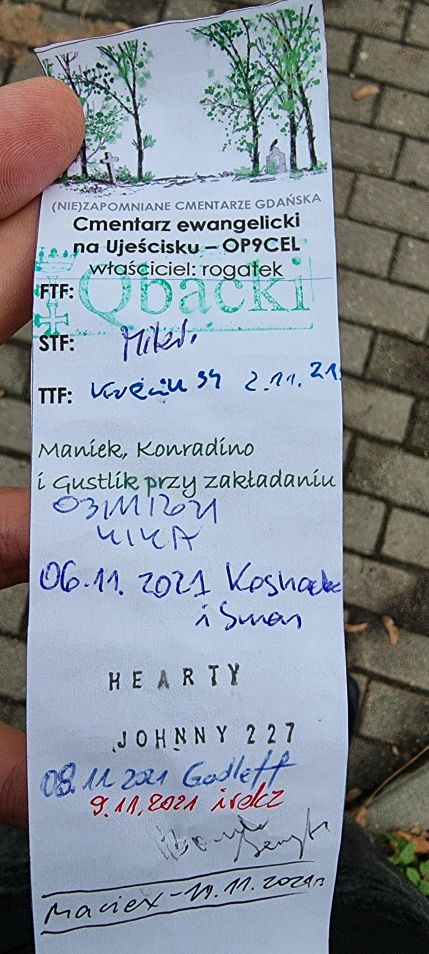 (NIE)ZAPOMNIANE CMENTARZE GDAŃSKA
Cmentarz ewangelicki
na Ujeścisku – OP9CEL
właściciel: rogatek
FTF: Qbacki
STF:
TTF: 2.11.21
Maniek, Konradino
i Gustlik przy zakładaniu
03/11/2021
KIKA
06.11.2021
i
HEARTY
JOHNNY 227
08.11.2021 Godleff
9.11.2021 irekz
Maciex - 10.11.2021r